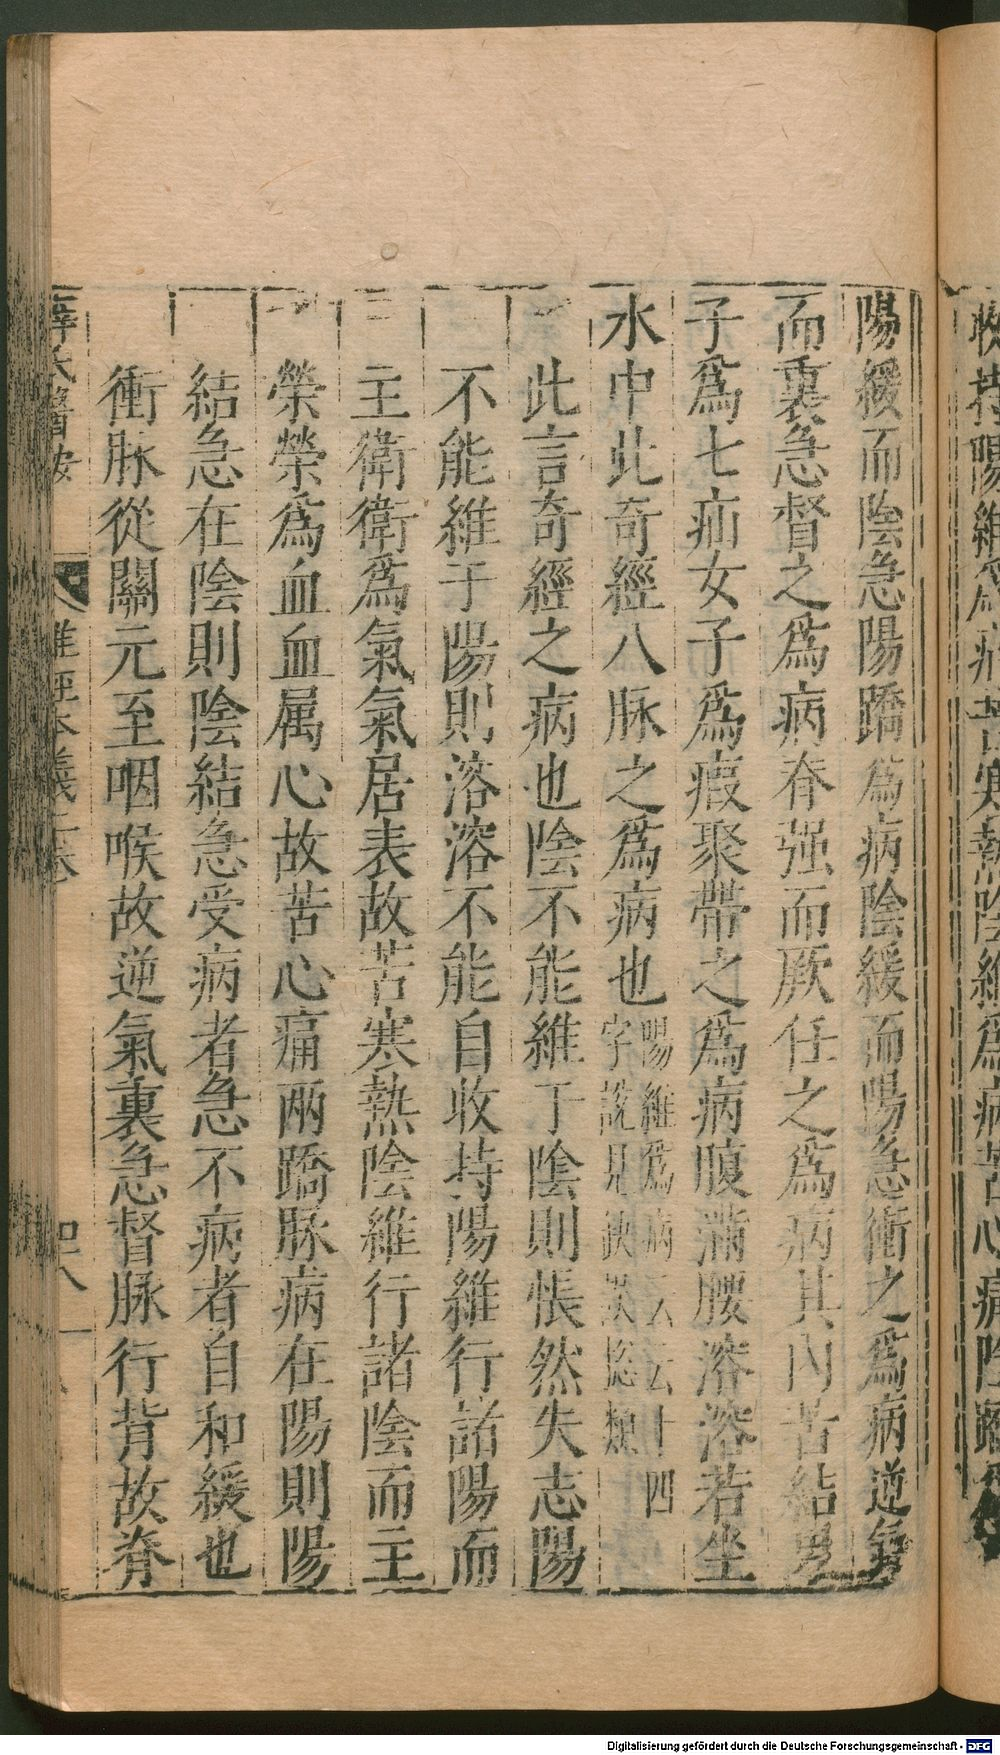 陽緩而陰急陽蹻爲病陰緩而陽急衝之爲病逆氣
而裏急督之爲病脊强而厥任之爲病其内苦結男
子爲七疝女子爲瘕聚帶之爲病腹滿腰溶溶若坐
水中此奇經八脉之爲病也陽維爲病云云十四
字說見缺誤揔類
此言奇經之病也陰不能維于陰則悵然失志陽
不能維于陽則溶溶不能自收持陽維行諸陽而
主衛衛爲氣氣居表故苦寒熱陰維行諸陰而主
榮榮爲血血属心故苦心痛兩蹻脉病在陽則陽
結急在陰則陰結急受病者急不病者自和緩也
衝脉從關元至咽喉故逆氣裏急督脉行背故脊
薛氏醫按
難經本義下卷
四八
收持陽維爲病苦寒熱陰維爲病苦心痛陰蹻爲
Digitalisierung gefördert durch die Deutsche Forschungsgemeinschaft - DFG